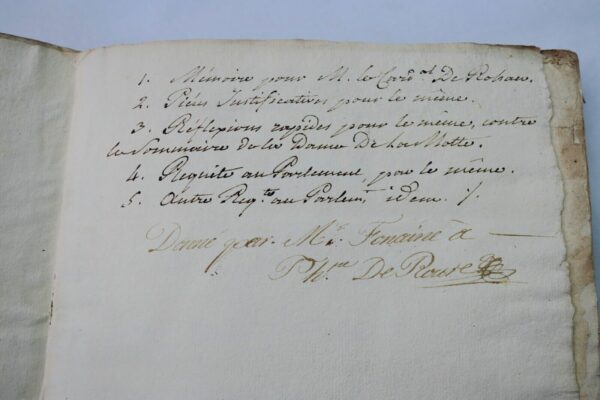 1. Mémoire pour M. le Card.al De Rohan.
2. Piéces Justificatives pour le même.
3. Réflexions rapides pour le même, contre
le Sommaire de la Dame De La Motte.
4. Requête au Parlement, pour le même.
5. Autre Req.te au Parlem.t idem ./.
Donné par Mr. Fonaine à
De Roure